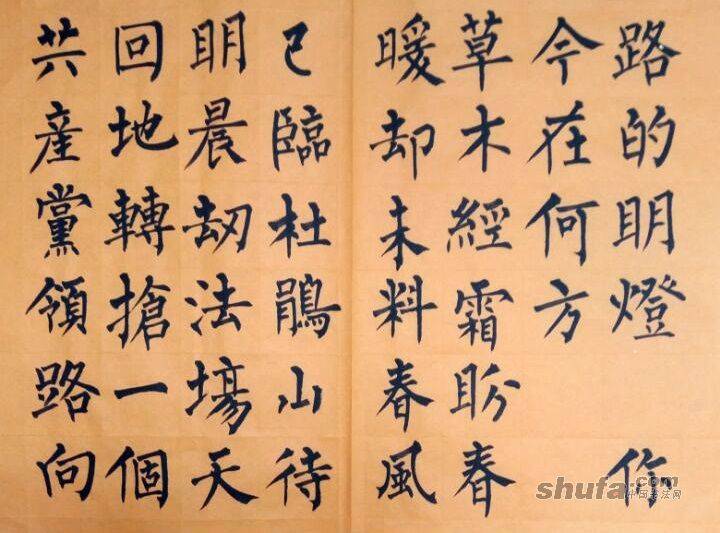 路的明燈 你
今在何方
草木經霜盼春
暖却未料春風
已臨杜鵑山待
明晨刧法場天
回地轉搶一個
共產黨領路向
shufa.com
中国书法网